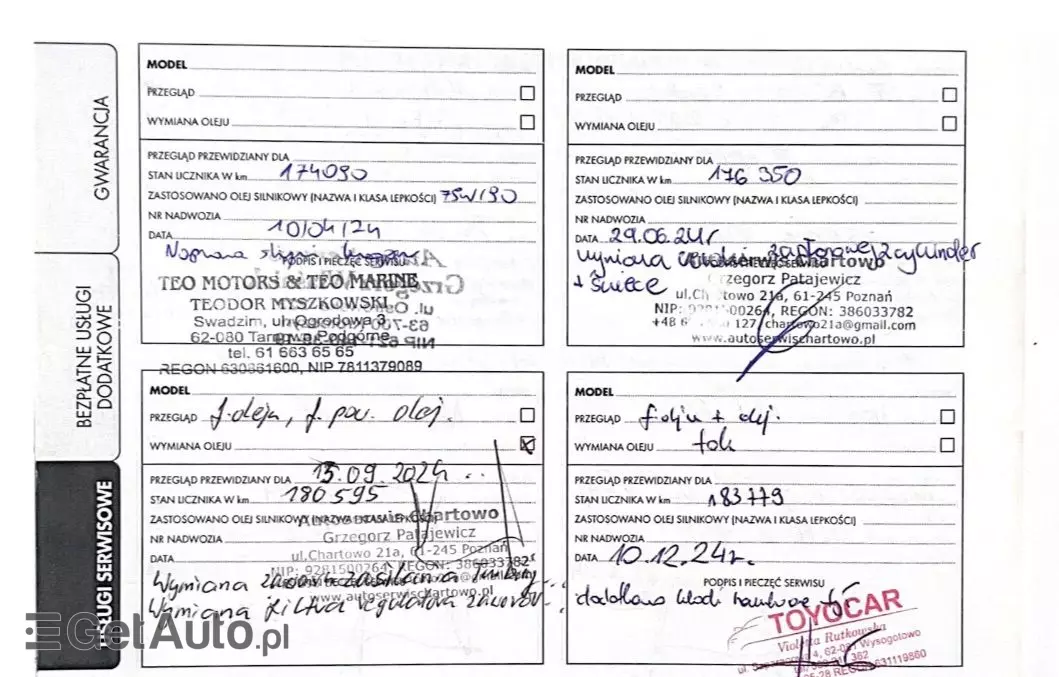 GWARANCJA
BEZPŁATNE USŁUGI
DODATKOWE
USŁUGI SERWISOWE
MODEL
PRZEGLĄD
WYMIANA OLEJU
PRZEGLĄD PRZEWIDZIANY DLA
STAN LICZNIKA W km 174090
ZASTOSOWANO OLEJ SILNIKOWY (NAZWA I KLASA LEPKOŚCI) 75W/90
NR NADWOZIA
DATA 10/04/24
Naprawa
PODPIS I PIECZĘĆ SERWISU
TEO MOTORS & TEO MARINE
TEODOR MYSZKOWSKI
Swadzim, ul. Ogrodowa 3
62-080 Tarnowo Podgórne
tel. 61 663 65 65
REGON 630861600, NIP 7811379089
MODEL
PRZEGLĄD
WYMIANA OLEJU
PRZEGLĄD PRZEWIDZIANY DLA
STAN LICZNIKA W km 176 350
ZASTOSOWANO OLEJ SILNIKOWY (NAZWA I KLASA LEPKOŚCI)
NR NADWOZIA
DATA 29.06.24r
wymiana zapłonowej 2 cylinder
+ świece
Autoserwis Chartowo
Grzegorz Patajewicz
ul.Chartowo 21a, 61-245 Poznań
REGON: 386033782
127, chartowo21a@gmail.com
www.autoserwischartowo.pl
MODEL
PRZEGLĄD f. oleju, f. pow. olej.
WYMIANA OLEJU
PRZEGLĄD PRZEWIDZIANY DLA 13.09.2024
STAN LICZNIKA W km 180 595
ZASTOSOWANO OLEJ SILNIKOWY (NAZWA I KLASA LEPKOŚCI)
NR NADWOZIA
DATA
Autoserwis Chartowo
Grzegorz Patajewicz
ul.Chartowo 21a, 61-245 Poznań
NIP: 9281500264, REGON: 386033782
www.autoserwischartowo.pl
Wymiana zaworu zasilania turbiny
Wymiana filtra regulatora zaworów
MODEL
PRZEGLĄD f. oleju + olej.
WYMIANA OLEJU tak
PRZEGLĄD PRZEWIDZIANY DLA
STAN LICZNIKA W km 183779
ZASTOSOWANO OLEJ SILNIKOWY (NAZWA I KLASA LEPKOŚCI)
NR NADWOZIA
DATA 10.12.24r.
PODPIS I PIECZĘĆ SERWISU
klocki hamulcowe
TOYOCAR
Violetta Rutkowska
Wysogotowo
REGON 631119860
GetAuto.pl